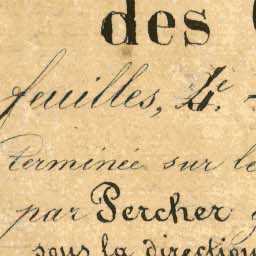 des
feuilles, 4e.
terminée sur le
par Percher
sous la direction